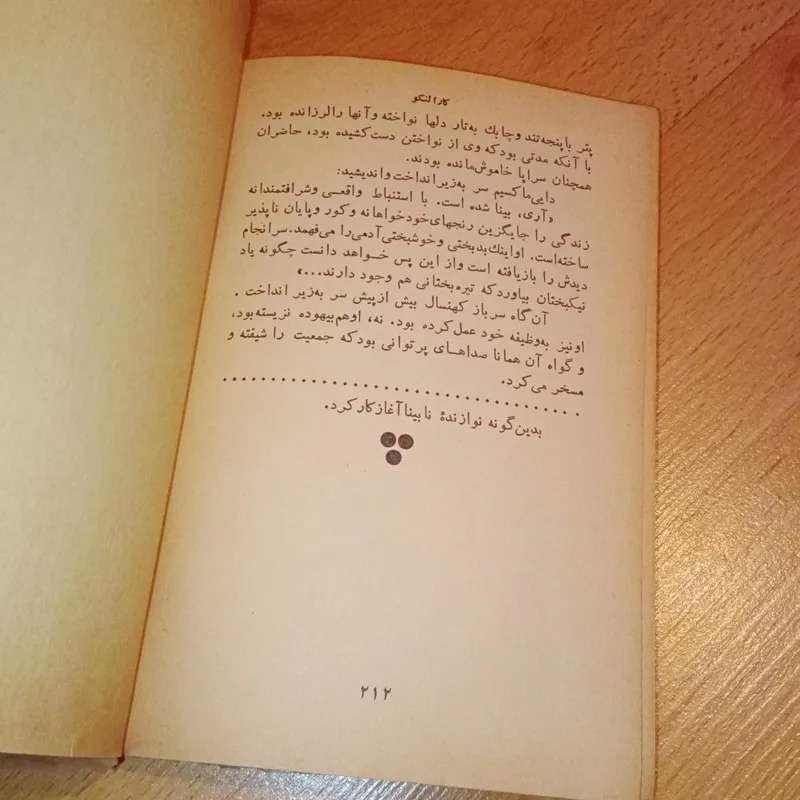 کارالنکو
پتر باپنجه‌تند وچابك به‌تار دلها نواخته وآنها رالرزانده بود.
با آنکه مدتی بودکه وی از نواختن دست‌کشیده بود، حاضران
همچنان سراپا خاموش‌مانده بودند.
دایی‌ماکسیم سر به‌زیرانداخت‌واندیشید:
«آری، بینا شده است. با استنباط واقعـی وشرافتمندانه
زندگی را جایگزین رنجهای‌خودخواهانه وکور وپایان ناپذیر
ساخته‌است. اواینك‌بدبختی وخوشبختی‌آدمی‌را می‌فهمد.سرانجام
دیدش را بازیافته است واز این پس خـواهد دانست چگونه یاد
نیکبختان بیاوردکه تیره‌بختانی هم وجود دارند...»
آن‌گاه سرباز کهنسال بیش ازپیش سر به‌زیر انداخت .
اونیز به‌وظیفه خود عمل‌کرده بود. نه، اوهم‌بیهوده نزیسته‌بود،
و گواه آن همانا صداهـای پرتوانی بودکه جمعیت را شیفته و
مسخر می‌کرد.
. . . . . . . . . . . . . . . . . . . . . . . . . . . . . . . . . . . . .
بدین‌گونه نوازندهٔ نابیناآغازکارکرد.
۲۱۲